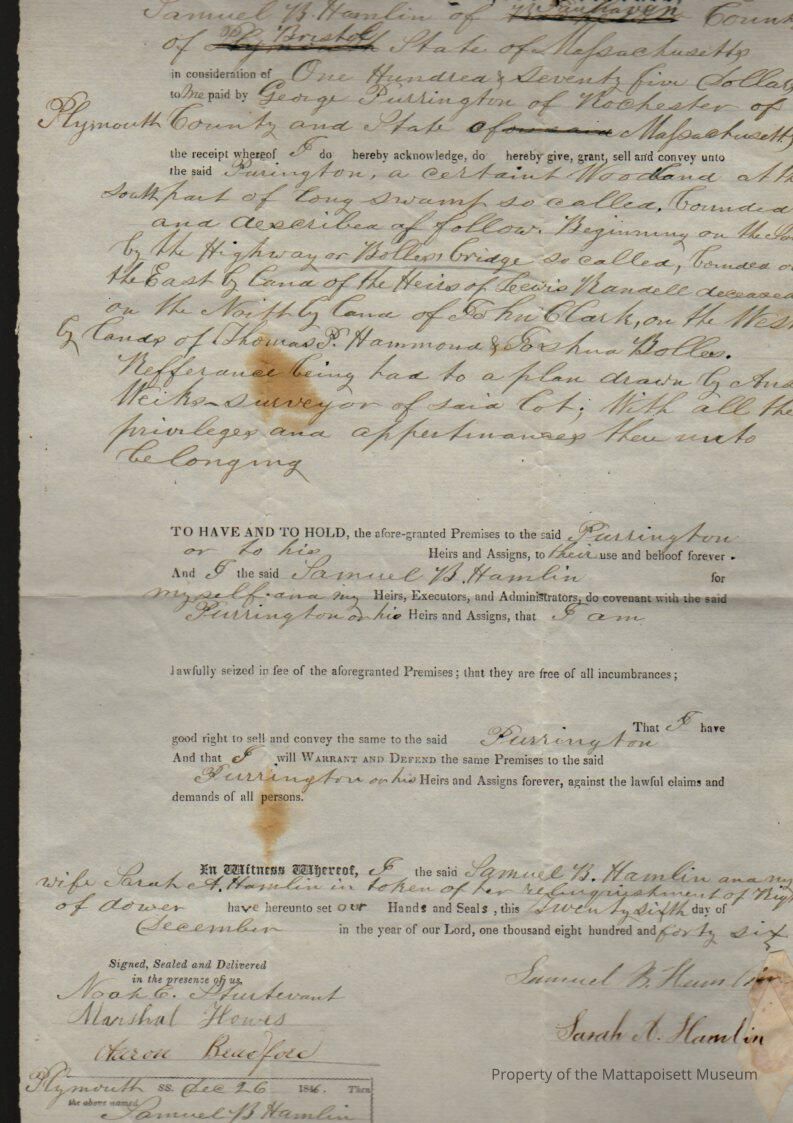 Samuel B. Hamlin of Fairhaven County
of Plymouth Bristol State of Massachusetts
in consideration of One Hundred & Seventy five Dollars
to Me paid by George Purrington of Rochester of
Plymouth County and State aforesaid Massachusetts
the receipt whereof I do hereby acknowledge, do hereby give, grant, sell and convey unto
the said Purington, a certaint Woodland at the
South part of long swamp so called. Bounded
and described af follow. Beginning on the
by the Highway or Bolles bridge so called, bounded on
the East by land of the Heirs of Lewis Randell deceased
on the North by land of John Clark, on the West
by lands of Thomas P. Hammond & Joshua Bolles.
Refferance being had to a plan drawn by
Weiks surveyor of said lot; With all the
privileges and appertinances there unto
belonging
TO HAVE AND TO HOLD, the afore-granted Premises to the said Purrington
or to his Heirs and Assigns, to their use and behoof forever.
And I the said Samuel B. Hamlin for
myself and my Heirs, Executors, and Administrators, do covenant with the said
Purrington or his Heirs and Assigns, that I am
lawfully seized in fee of the aforegranted Premises; that they are free of all incumbrances;
That I have
good right to sell and convey the same to the said Purrington
And that I will WARRANT AND DEFEND the same Premises to the said
Purrington or his Heirs and Assigns forever, against the lawful claims and
demands of all persons.
In Witness Whereof, I the said Samuel B. Hamlin and my
wife Sarah A. Hamlin in token of her relinquishment of Right
of dower have hereunto set our Hands and Seals, this Twenty sixth day of
December in the year of our Lord, one thousand eight hundred and forty six
Signed, Sealed and Delivered
in the presence of us,
Noah C. Sturtevant
Marshal Howes
Aaron
Samuel B. Hamlin
Sarah A. Hamlin
Property of the Mattapoisett Museum
Plymouth ss. Dec 26 1846. Then
the above named
Samuel B Hamlin